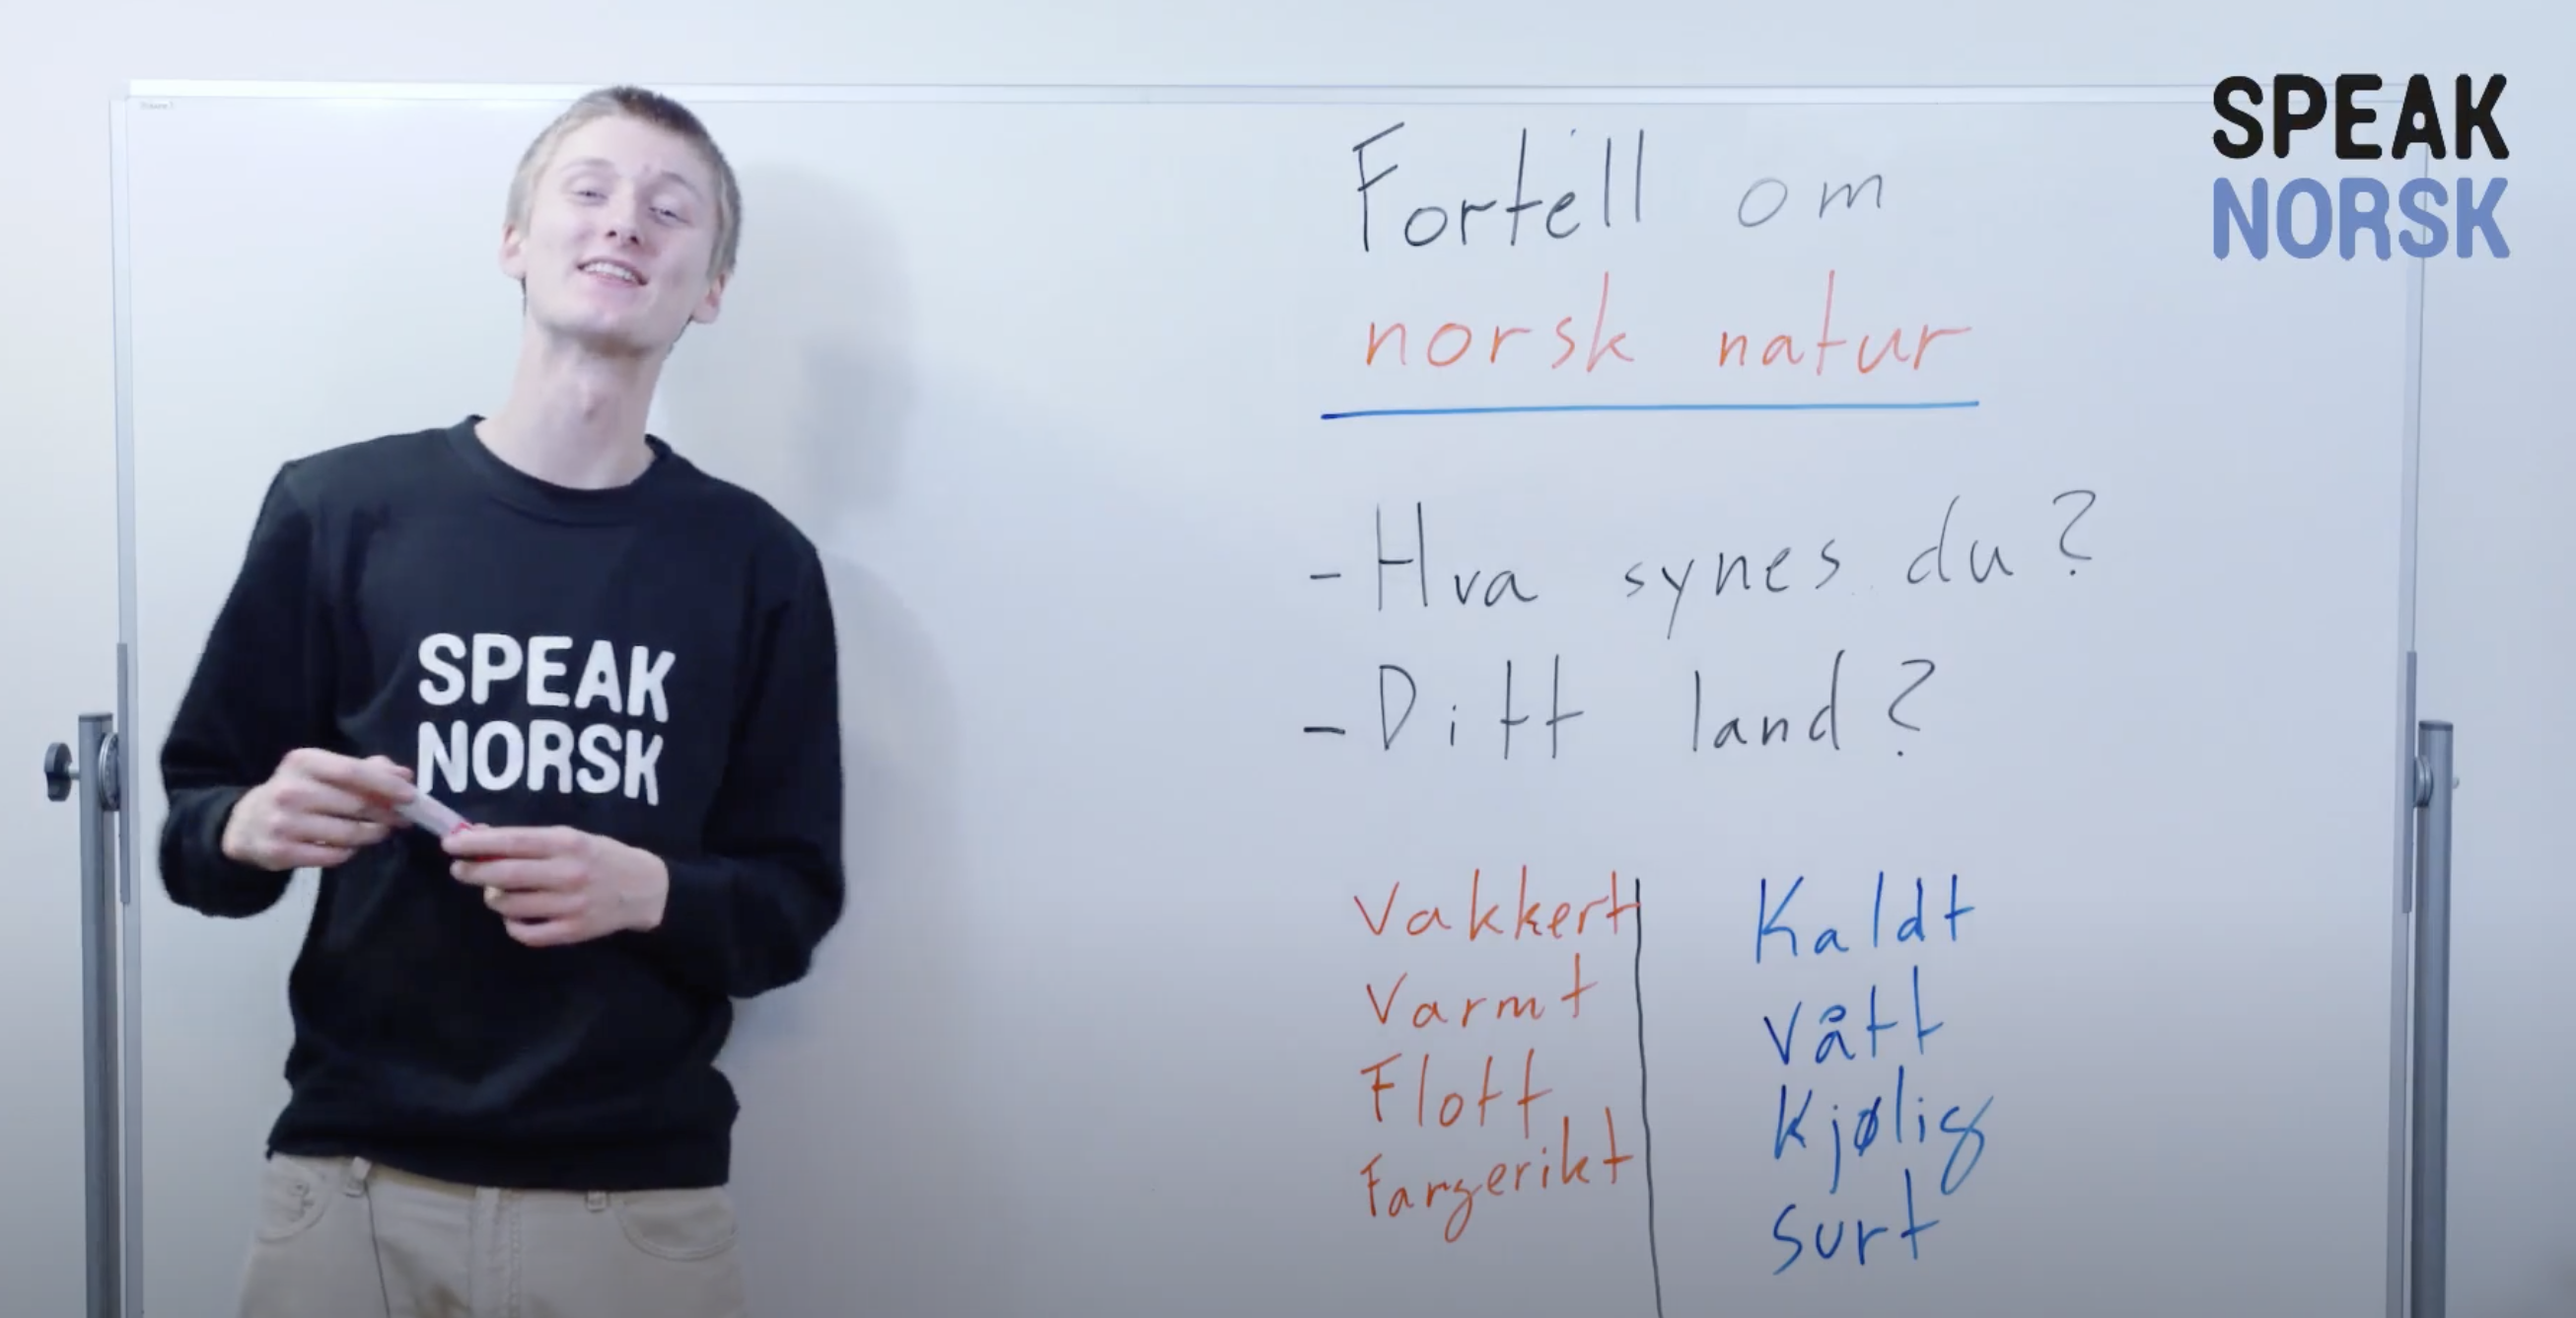 SPEAK
NORSK
SPEAK
NORSK
Fortell om
norsk natur
- Hva synes du?
- Ditt land?
Vakkert
Varmt
Flott
Fargerikt
Kaldt
Vått
Kjølig
Surt